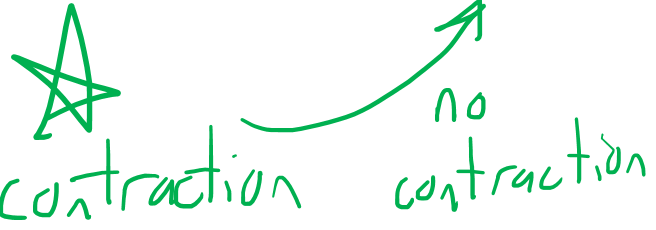 no
contraction
contraction